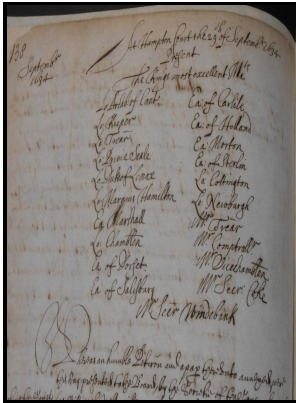 138
Septembr
1634
At Hampton Court the 29th of September 1634
Present
The Kings most excellent Matie
Lo: Archbp of Cant:
Lo: Keeper
Lo: Trear
Lo: Privie Seale
Lo: Duke of Lenox
Lo: Marquis Hamilton
Ea: Marshall
Lo: Chamblen
Ea: of Dorset
Ea: of Salisbury
Ea: of Carlile
Ea: of Holland
Ea: Morton
Ea: of Sterlin
Lo: Cottington
Lo: Newburgh
Mr Trear
Mr Comptrollr
Mr Vicechamblen
Mr Secr: Coke
Mr Secr Windebank
was an humble Petition and